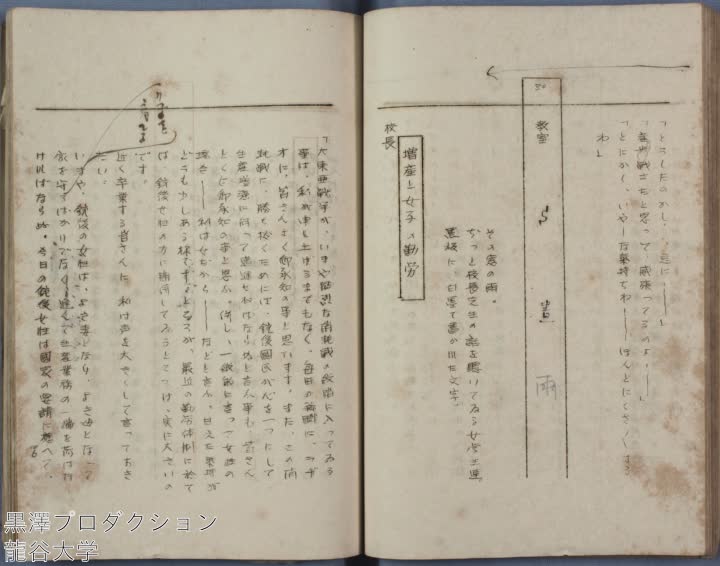 「どうしたのかし、急に——」
「産業戦士だと思って、威張ってるのよ——」
「とにかく、いやーな気持でわ——ほんとにくさくする
わ」
50 教室 ら 書 雨
その窓の雨。
ぢっと校長先生の話を聴いてゐる女学生達。
黒板に、白墨で書かれた文字。
増産と女子の勤労
校長
「大東亜戦争が、いまや熾烈な消耗戦の段階に入ってゐる
事は、私が申し上げるまでもなく、毎日の新聞に、ラヂ
オに、皆さんよく御承知の事と思います。また、この消
耗戦に、勝ち抜くためには、銃後國民が心を一つにして
生産増強に向って邁進せねばならぬと言ふ事も、皆さん
とくに御承知の事と思ふ。併し、一般的に言って女性の
場合——私は女だから——などと言ふ、甘えた気持が
どうも少しある様です。ところが、最近の勤労体制に於て
は、銃後女性の力に期待してゐるところは、実に大きいの
です。
近く卒業する皆さんに、私は声を大きくして言っておき
たい。
いまや、銃後の女性は、よき妻となり、よき母となって
家を守るばかりでなく、進んで生産業務の一端を荷はな
ければならぬ。今日の銃後女性は國家の要請に應へて、
黒澤プロダクション
龍谷大学